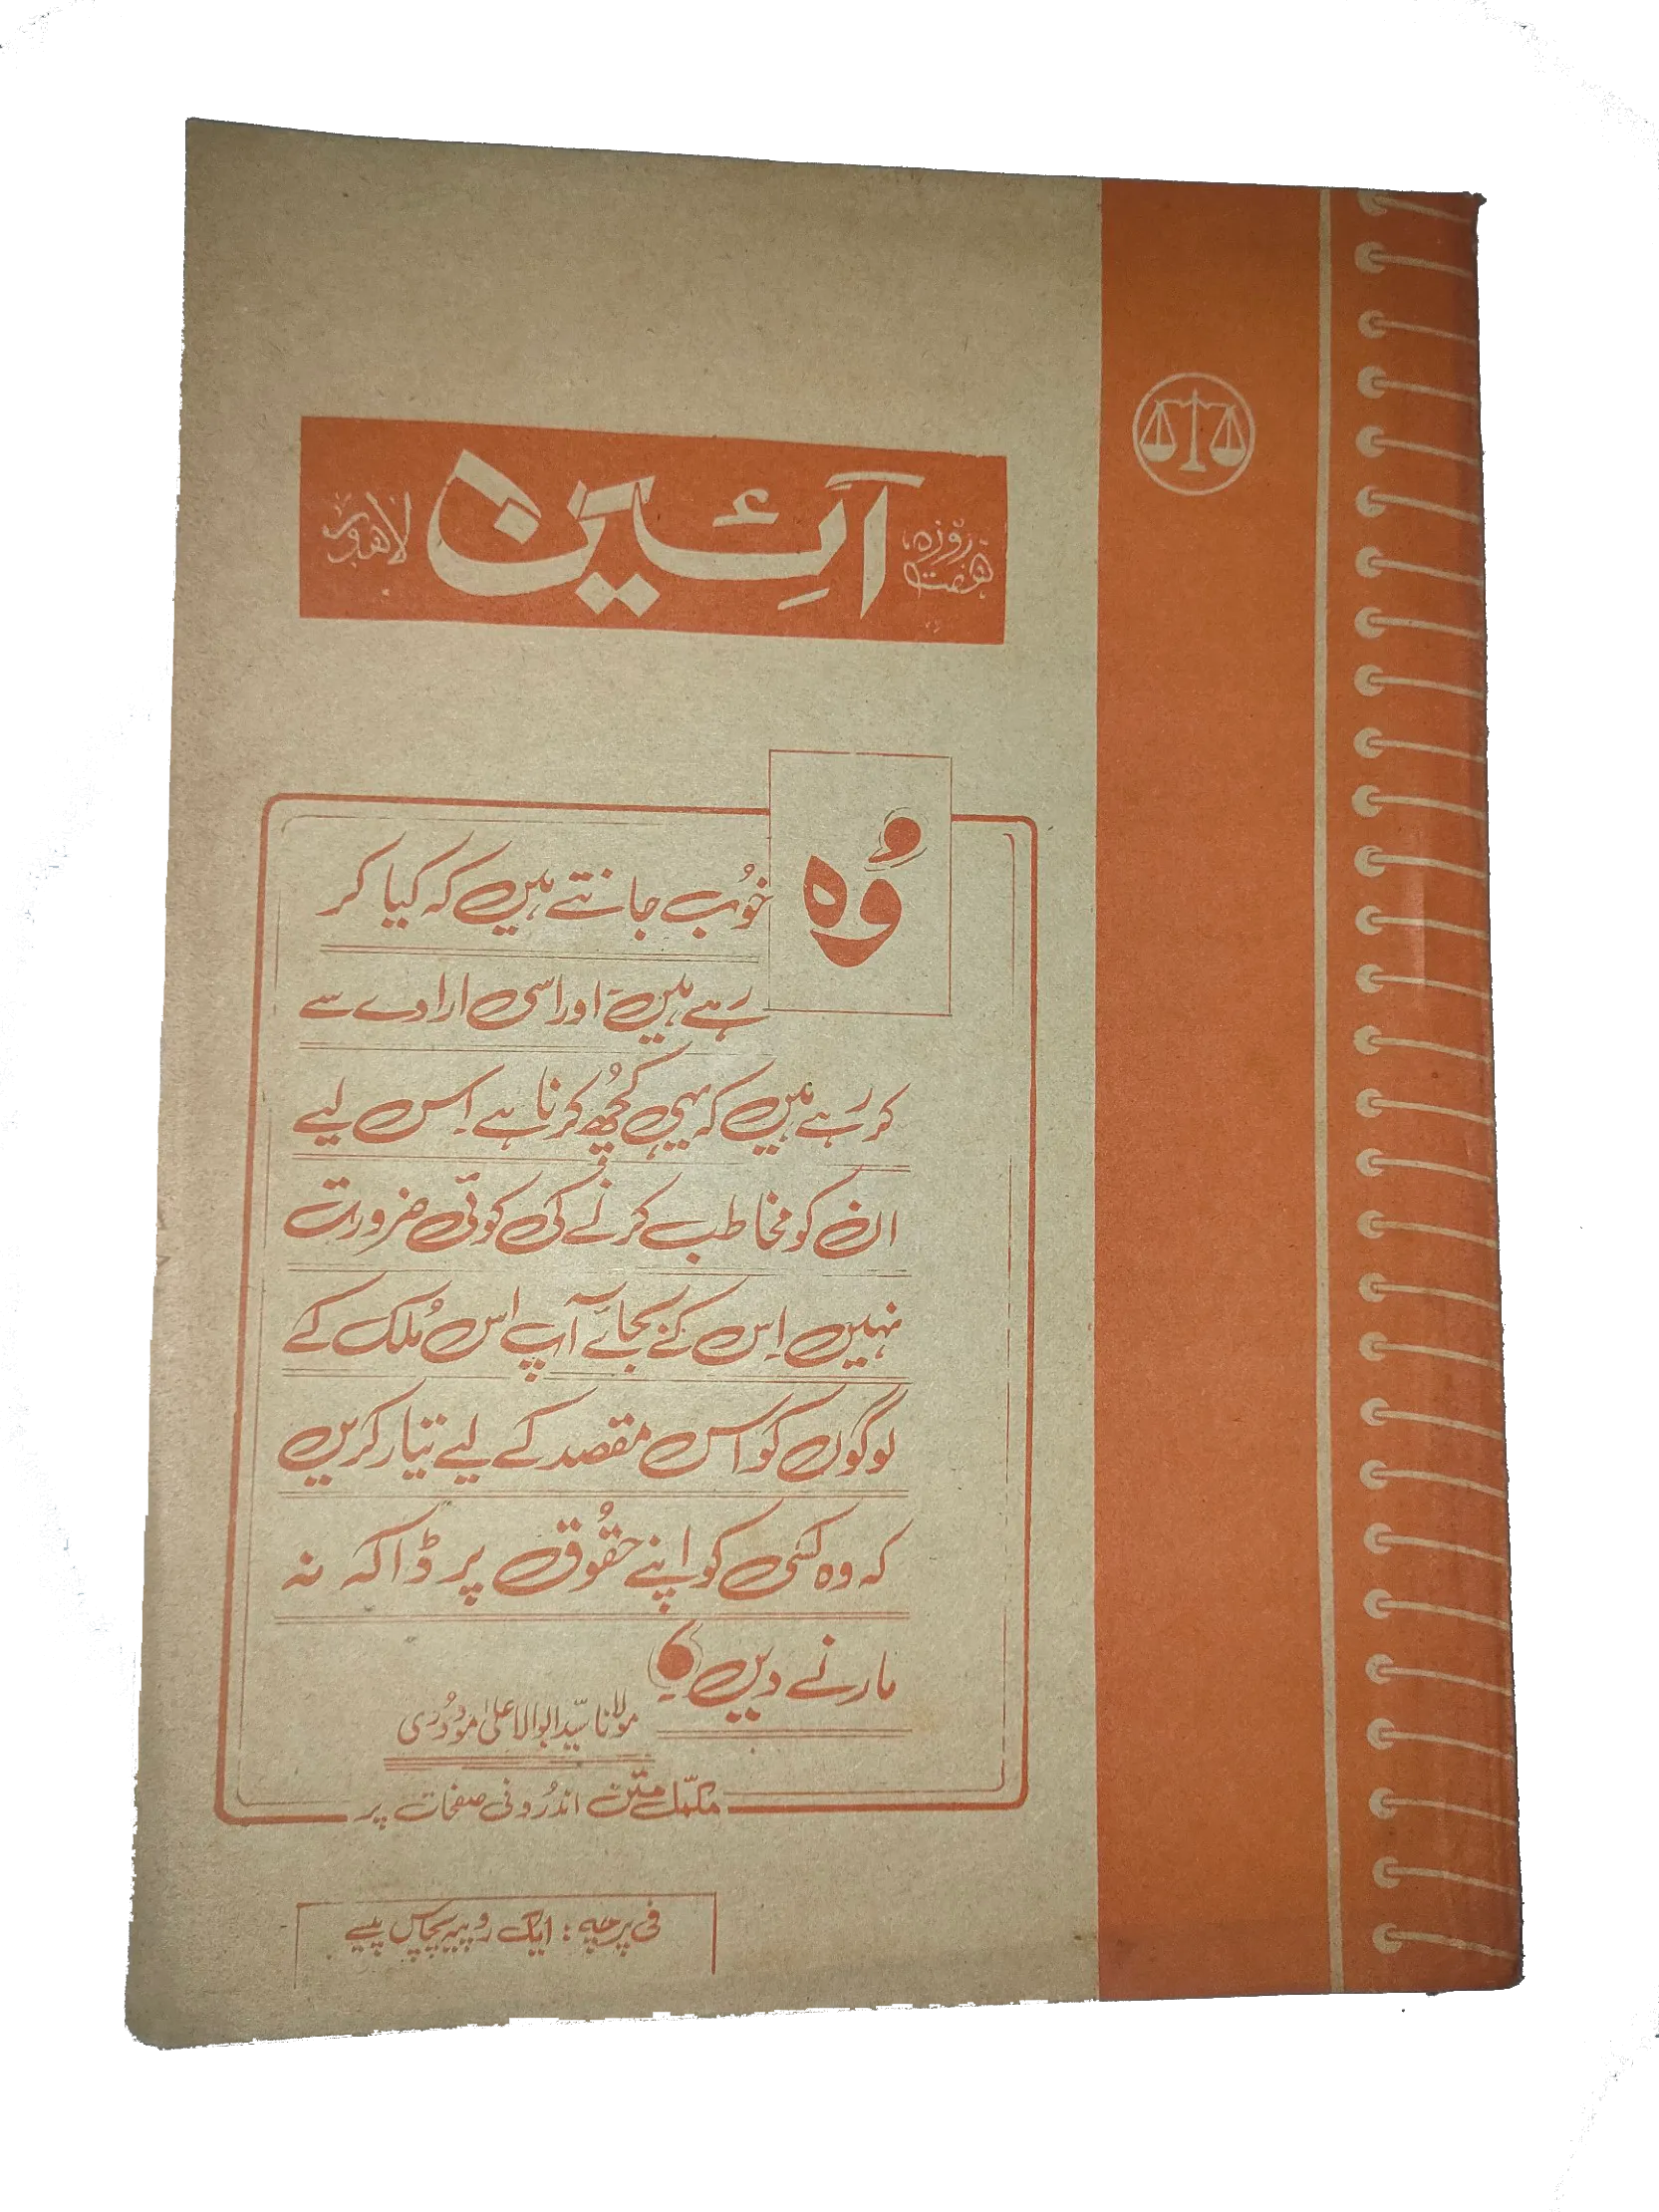 ہفت روزہ آئین لاہور
وُہ
خوُب جانتے ہیں کہ کیا کر
رَہے ہیں۔ اور اسی ارادے سے
کر رَہے ہیں کہ یہی کُچھ کرنا ہے۔ اِس لیے
ان کو مخاطب کرنے کی کوئی ضرورت
نہیں اِس کے بجائے آپ اس مُلک کے
لوگوں کو اس مقصد کے لیے تیّار کریں
کہ وہ کسی کو اپنے حقُوق پر ڈاکہ نہ
مارنے دیں۔
مولانا سیّد ابوالاعلیٰ مودُودی
مکمّل متن اندرُونی صفحات پر
فی پرچہ : ایک روپیہ پچاس پیسے